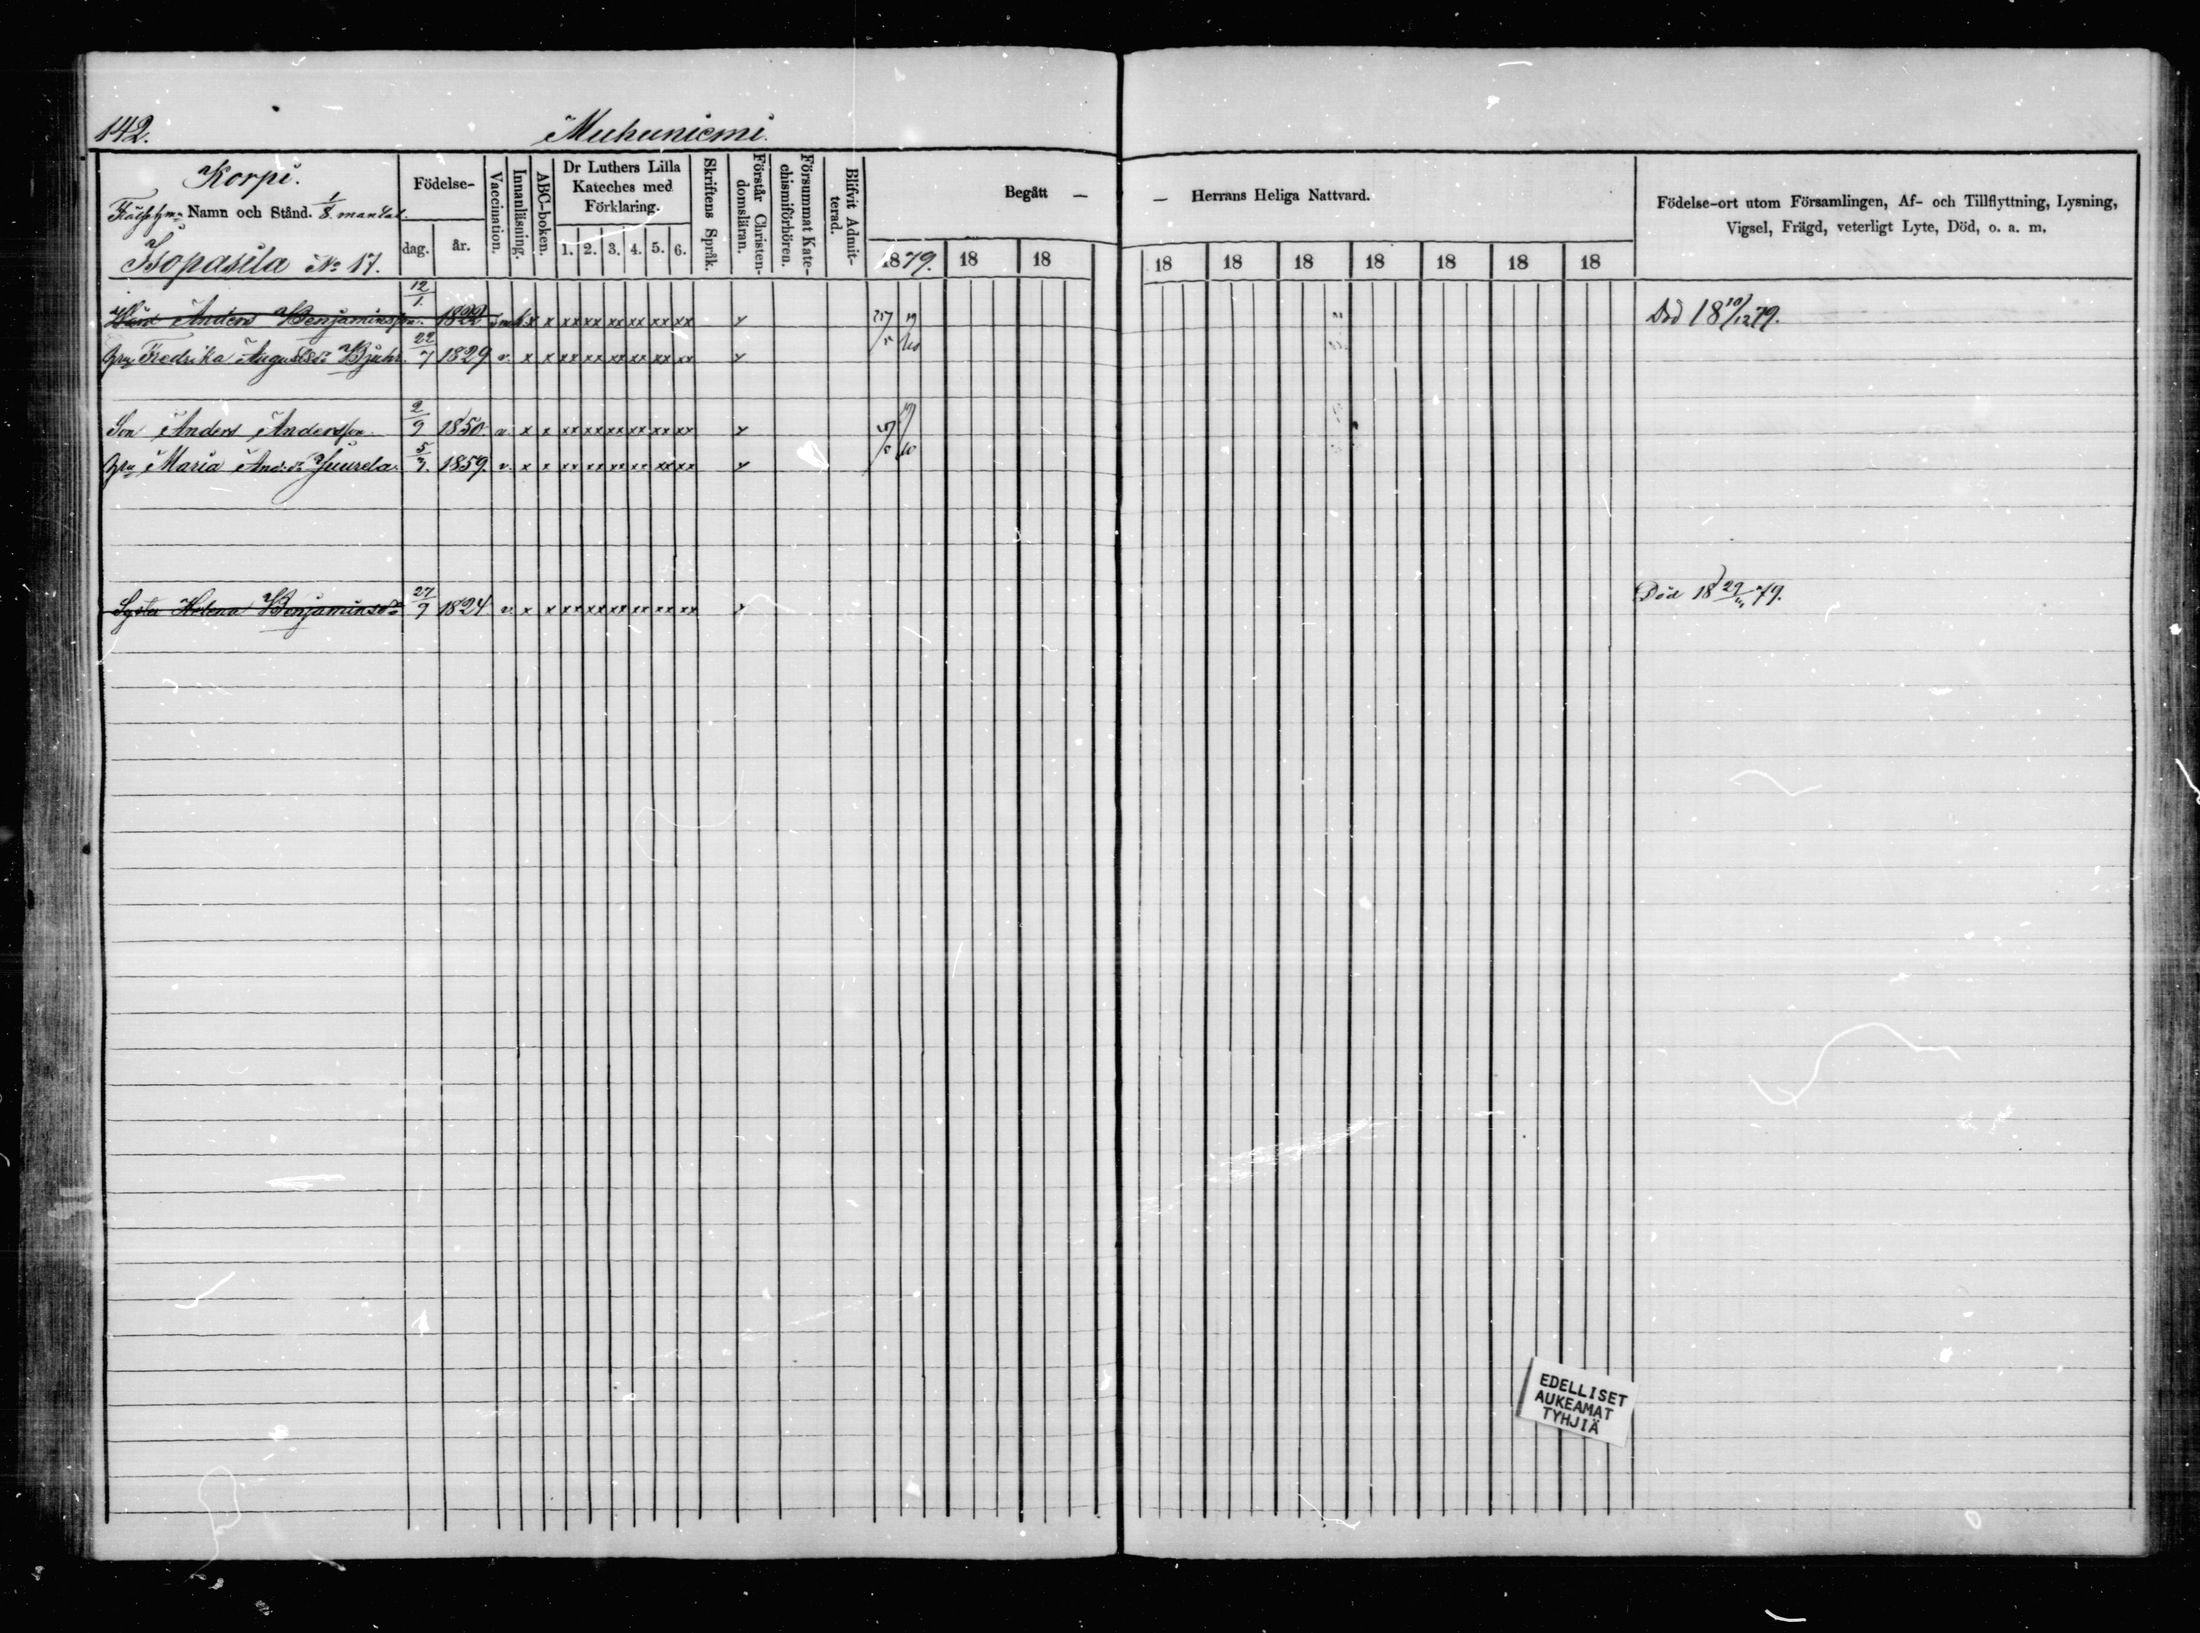 142.
Muhuniemi.
Korpi.
Namn och Stånd. 1/8 mantal.
Isopasila No 17.
Födelse-
dag. år.
Vaccination.
Innanläsning.
ABC-boken.
Dr Luthers Lilla
Kateches med
Förklaring.
1. 2. 3. 4. 5. 6.
Skriftens Språk.
Förstår Christen-
domsläran.
Försummat Kate-
chismiförhören.
Blifvit Admit-
terad.
Begått —
1879. 18 18
— Herrans Heliga Nattvard.
18 18 18 18 18 18 18
Födelse-ort utom Församlingen, Af- och Tillflyttning, Lysning,
Vigsel, Frägd, veterligt Lyte, Död, o. a. m.
Anders Benjaminsson. 12/1. 1822 x x xx xx xx xx xx xx Död 18 10/12 79.
Fredrika Augustsdr 22/7 1829 v. x x xx xx xx xx xx xx
Son Anders Andersson. 2/9 1850. v. x x xx xx xx xx xx xx
Maria And:dr Juurela. 5/3. 1859. v. x x xx xx xx xx xx xx
Syster Helena Benjaminsdr 27/9 1824 v. x x xx xx xx xx xx xx Död 18 29/11 79.
EDELLISET
AUKEAMAT
TYHJIÄ